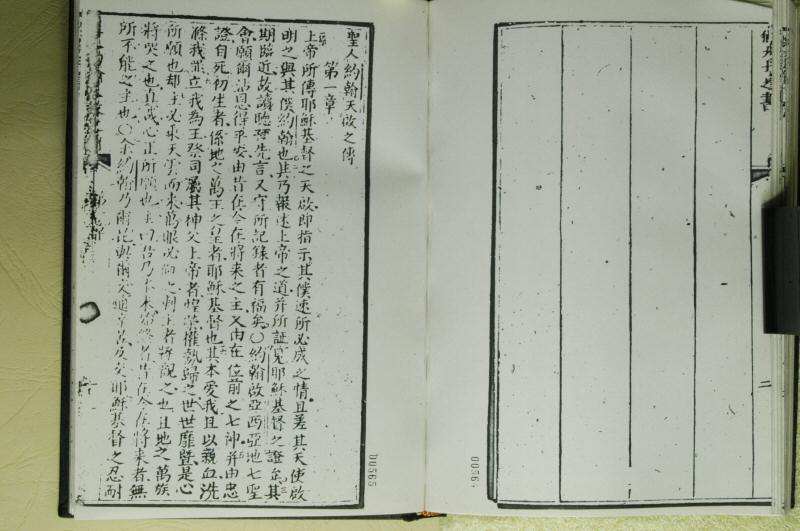 聖人約翰天啟之傳
第一章
上帝所傳耶穌基督之天啟即指示其僕速所必成之情且差其天使啟
明之與其僕約翰也其乃報述上帝之道并所証見耶穌基督之證矣其
期臨近故讀聽預先言又守所記錄者有福矣〇約翰啟亞西亞地七聖
會願爾沾恩得平安由昔在今在將來之主又由在位前之七神并由忠
證自死初生者係地之萬王之王者耶穌基督也其本愛我且以親血洗
滌我罪立我為王祭司屬其神父上帝者惶榮權勢歸之世世靡暨是心
所願也却主必乘天雲而來萬眼必仰之刺主者將觀之也且地之萬族
將哭之也真誠心正所願也主曰吾乃始終者昔在今在將來者無
所不能之主也〇余約翰乃爾耶穌基督之忍耐
二
00565
0056